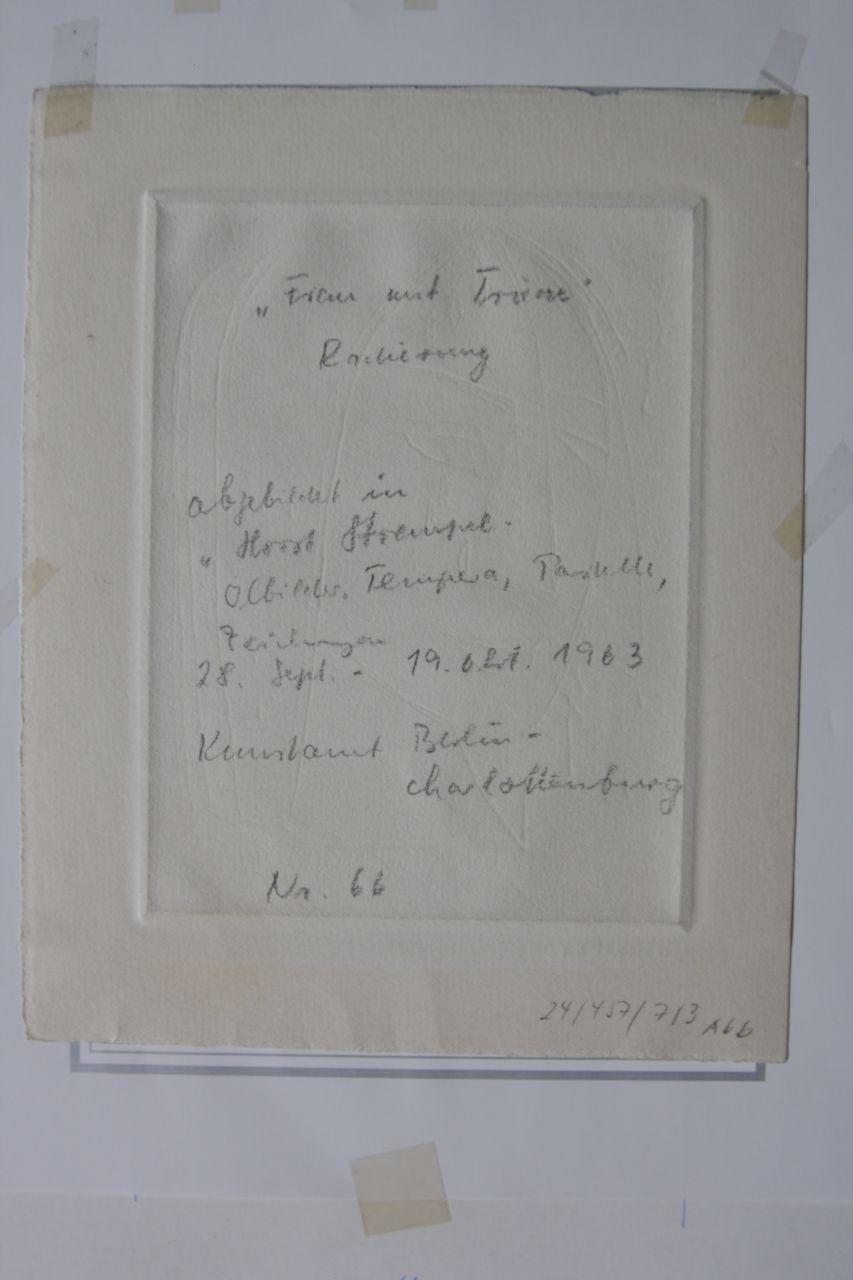 „Frau mit Träne"
Radierung
abgebildet in
„Horst Strempel.
Ölbilder, Tempera, Pastelle,
Zeichnungen
28. Sept. - 19. Okt. 1963
Kunstamt Berlin-
charlottenburg
Nr. 66
24/457/7/3 Abb